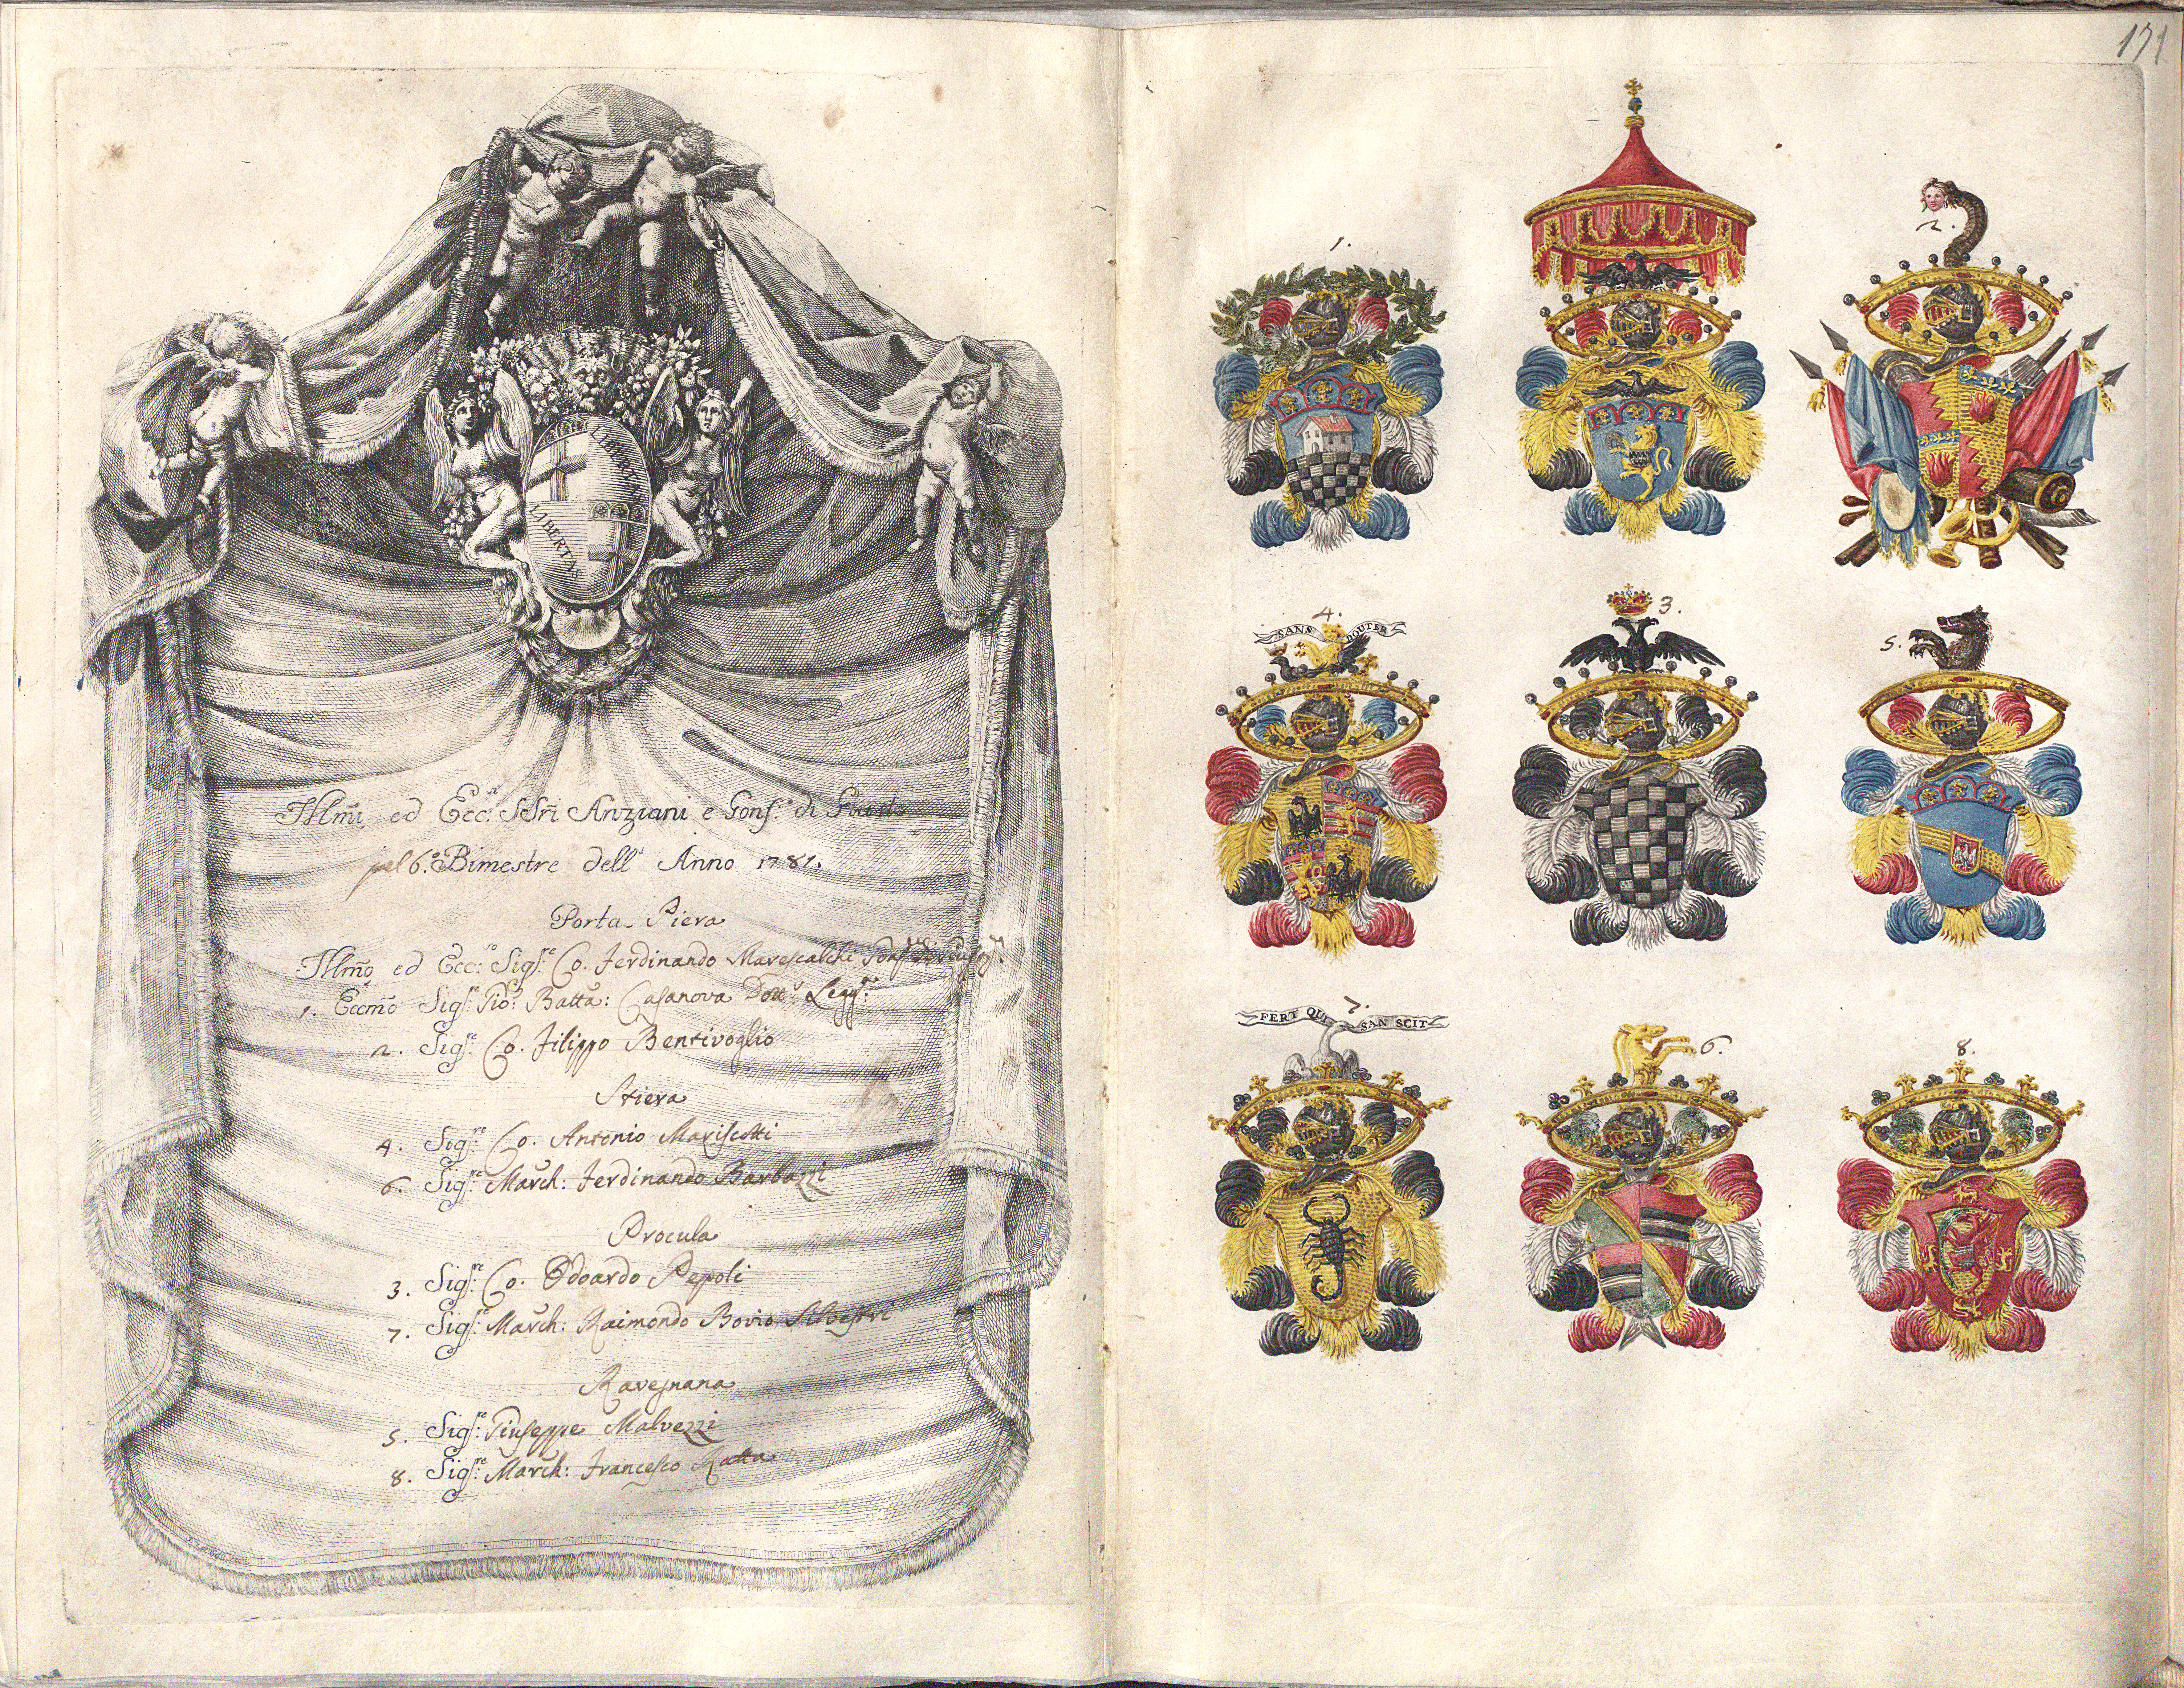 171
LIBERTAS
LIBERTAS
Illmi ed Ecc: SSri Anziani e Gonf. di Giust.
pel 6.º Bimestre dell' Anno 1781.
Porta Piera
Illmo ed Ecc: Sigre Co. Ferdinando Marescalchi Gonf.
1. Eccmo Sigre Gio: Batta: Casanova Dott.e Legg.e
2. Sigre Co. Filippo Bentivoglio
Stiera
4. Sigre Co. Antonio Mariscotti
6. Sigre March: Ferdinando Barbazzi
Procula
3. Sigre Co. Odoardo Pepoli
7. Sigre March: Raimondo Bovio Silvestri
Ravegnana
5. Sigre Giuseppe Malvezzi
8. Sigre March: Francesco Ratta
1.
2.
4.
SANS DOUTER
3.
5.
7.
FERT QUI SAN SCIT
6.
8.